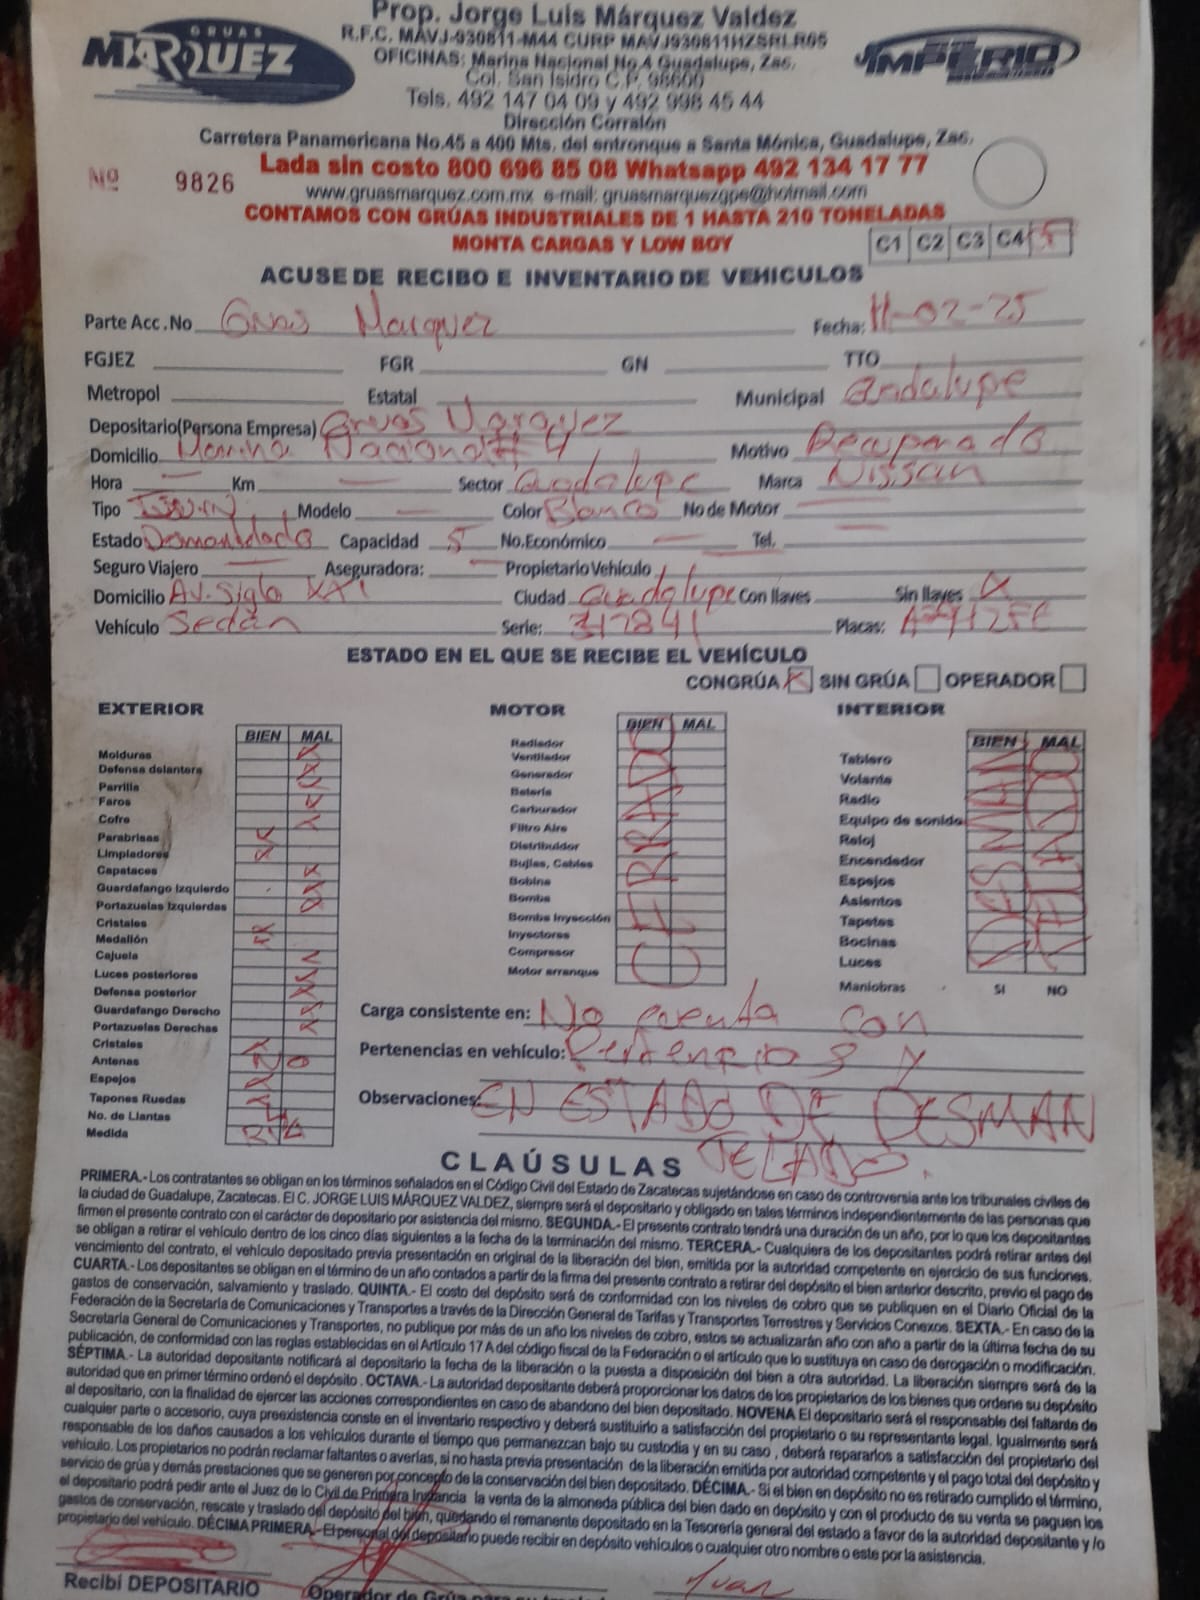 GRUAS
MÁRQUEZ
Prop. Jorge Luis Márquez Valdez
R.F.C. MAVJ-930811-M44 CURP MAVJ930811HZSRLR05
OFICINAS: Marina Nacional No.4 Guadalupe, Zac.
Col. San Isidro C.P. 98600
Tels. 492 147 04 09 y 492 998 45 44
IMPERIO
Dirección Corralón
Carretera Panamericana No.45 a 400 Mts. del entronque a Santa Mónica, Guadalupe, Zac.
Nº 9826
Lada sin costo 800 696 85 08 Whatsapp 492 134 17 77
www.gruasmarquez.com.mx e-mail: gruasmarquezgpe@hotmail.com
CONTAMOS CON GRÚAS INDUSTRIALES DE 1 HASTA 210 TONELADAS
MONTA CARGAS Y LOW BOY
C1 C2 C3 C4 5
ACUSE DE RECIBO E INVENTARIO DE VEHICULOS
Parte Acc.No Gruas Marquez Fecha: 11-02-25
FGJEZ FGR GN TTO
Metropol Estatal Municipal Guadalupe
Depositario(Persona Empresa) Gruas Marquez
Domicilio Marina Nacional # 4 Motivo Recuperado
Hora — Km — Sector Guadalupe Marca Nissan
Tipo Modelo — Color Blanco No de Motor —
Estado Desmantelado Capacidad 5 No.Económico — Tel. —
Seguro Viajero — Aseguradora: — Propietario Vehículo
Domicilio Av. Siglo XXI Ciudad Guadalupe Con llaves Sin llaves X
Vehículo Sedán Serie: 317841 Placas:
ESTADO EN EL QUE SE RECIBE EL VEHÍCULO
CON GRÚA X SIN GRÚA OPERADOR
EXTERIOR
BIEN MAL
Molduras X
Defensa delantera X
Parrilla X
Faros X
Cofre X
Parabrisas X
Limpiadores X
Capataces X
Guardafango Izquierdo X
Portazuelas Izquierdas X
Cristales X
Medallón X
Cajuela
Luces posteriores X
Defensa posterior X
Guardafango Derecho X
Portazuelas Derechas X
Cristales X
Antenas NO
Espejos X
Tapones Ruedas X
No. de Llantas 4
Medida
MOTOR
BIEN MAL
Radiador
Ventilador
Generador
Batería
Carburador
Filtro Aire
Distribuidor
Bujías, Cables
Bobina
Bomba
Bomba Inyección
Inyectores
Compresor
Motor arranque
CERRADO
INTERIOR
BIEN MAL
Tablero
Volante
Radio
Equipo de sonido
Reloj
Encendedor
Espejos
Asientos
Tapetes
Bocinas
Luces
DESMAN
TELADO
Maniobras SI NO
Carga consistente en: No cuenta con
Pertenencias en vehículo: Pertencias y
Observaciones: EN ESTADO DE DESMAN
TELADO.
CLAÚSULAS
PRIMERA.- Los contratantes se obligan en los términos señalados en el Código Civil del Estado de Zacatecas sujetándose en caso de controversia ante los tribunales civiles de
la ciudad de Guadalupe, Zacatecas. El C. JORGE LUIS MÁRQUEZ VALDEZ, siempre será el depositario y obligado en tales términos independientemente de las personas que
firmen el presente contrato con el carácter de depositario por asistencia del mismo. SEGUNDA.- El presente contrato tendrá una duración de un año, por lo que los depositantes
se obligan a retirar el vehículo dentro de los cinco días siguientes a la fecha de la terminación del mismo. TERCERA.- Cualquiera de los depositantes podrá retirar antes del
vencimiento del contrato, el vehículo depositado previa presentación en original de la liberación del bien, emitida por la autoridad competente en ejercicio de sus funciones.
CUARTA.- Los depositantes se obligan en el término de un año contados a partir de la firma del presente contrato a retirar del depósito el bien anterior descrito, previo el pago de
gastos de conservación, salvamiento y traslado. QUINTA.- El costo del depósito será de conformidad con los niveles de cobro que se publiquen en el Diario Oficial de la
Federación de la Secretaría de Comunicaciones y Transportes a través de la Dirección General de Tarifas y Transportes Terrestres y Servicios Conexos. SEXTA.- En caso de la
Secretaría General de Comunicaciones y Transportes, no publique por más de un año los niveles de cobro, estos se actualizarán año con año a partir de la última fecha de su
publicación, de conformidad con las reglas establecidas en el Artículo 17 A del código fiscal de la Federación o el artículo que lo sustituya en caso de derogación o modificación.
SÉPTIMA.- La autoridad depositante notificará al depositario la fecha de la liberación o la puesta a disposición del bien a otra autoridad. La liberación siempre será de la
autoridad que en primer término ordenó el depósito . OCTAVA.- La autoridad depositante deberá proporcionar los datos de los propietarios de los bienes que ordene su depósito
al depositario, con la finalidad de ejercer las acciones correspondientes en caso de abandono del bien depositado. NOVENA El depositario será el responsable del faltante de
cualquier parte o accesorio, cuya preexistencia conste en el inventario respectivo y deberá sustituirlo a satisfacción del propietario o su representante legal. Igualmente será
responsable de los daños causados a los vehículos durante el tiempo que permanezcan bajo su custodia y en su caso , deberá repararlos a satisfacción del propietario del
vehículo. Los propietarios no podrán reclamar faltantes o averías, si no hasta previa presentación de la liberación emitida por autoridad competente y el pago total del depósito y
servicio de grúa y demás prestaciones que se generen por concepto de la conservación del bien depositado. DÉCIMA.- Si el bien en depósito no es retirado cumplido el término,
el depositario podrá pedir ante el Juez de lo Civil de Primera Instancia la venta de la almoneda pública del bien dado en depósito y con el producto de su venta se paguen los
gastos de conservación, rescate y traslado del depósito del bien, quedando el remanente depositado en la Tesorería general del estado a favor de la autoridad depositante y /o
propietario del vehículo. DÉCIMA PRIMERA.- El personal del depositario puede recibir en depósito vehículos o cualquier otro nombre o este por la asistencia.
Recibí DEPOSITARIO Operador de Grúa para su traslado Juan